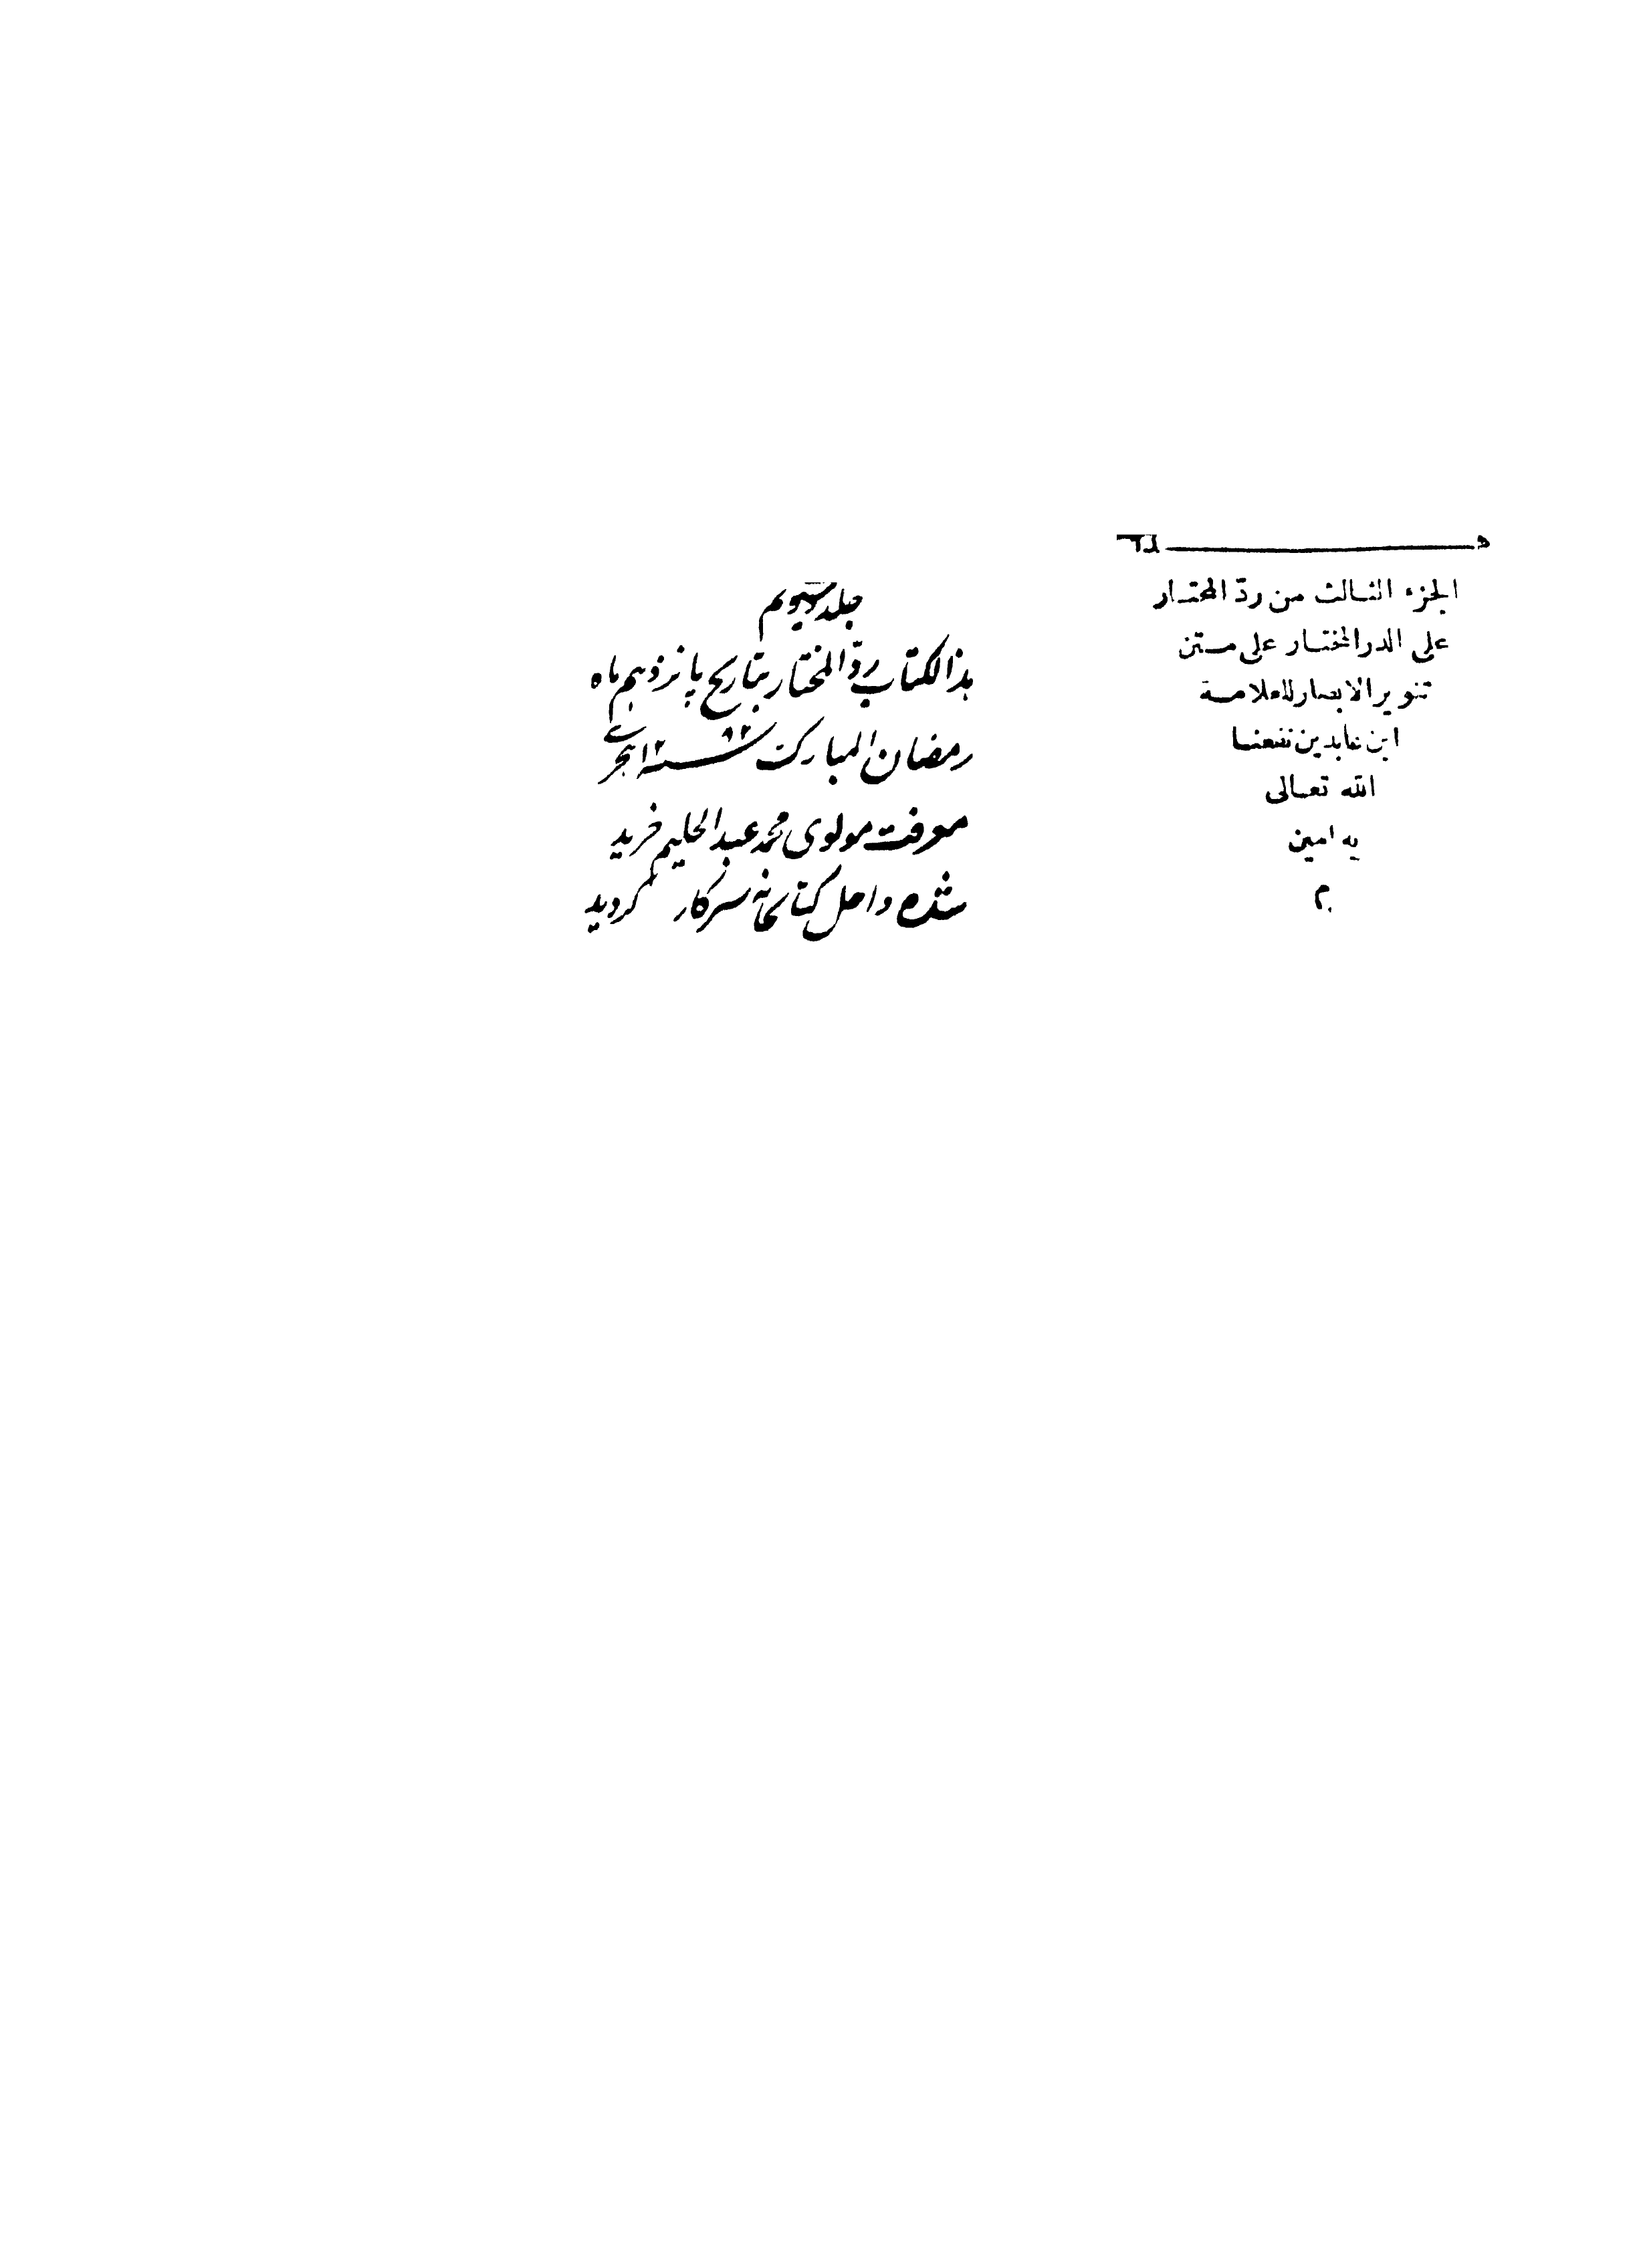 الجزء الثالث من ردّ المحتار
على الدر المختار على متن
تنوير الابصار للعلامة
ابن عابدين نفعنا
الله تعالى
به امين
م
جلد سیوم
هذا لکتاب ردّ المختار بتاریخ پانزدہم ماہ
رمضان المبارک سنہ ۱۲۸۲ ہجری
معرفت مولوی محمد عبد الحلیم خرید
شدہ داخل کتابخانہ سرکار گردید